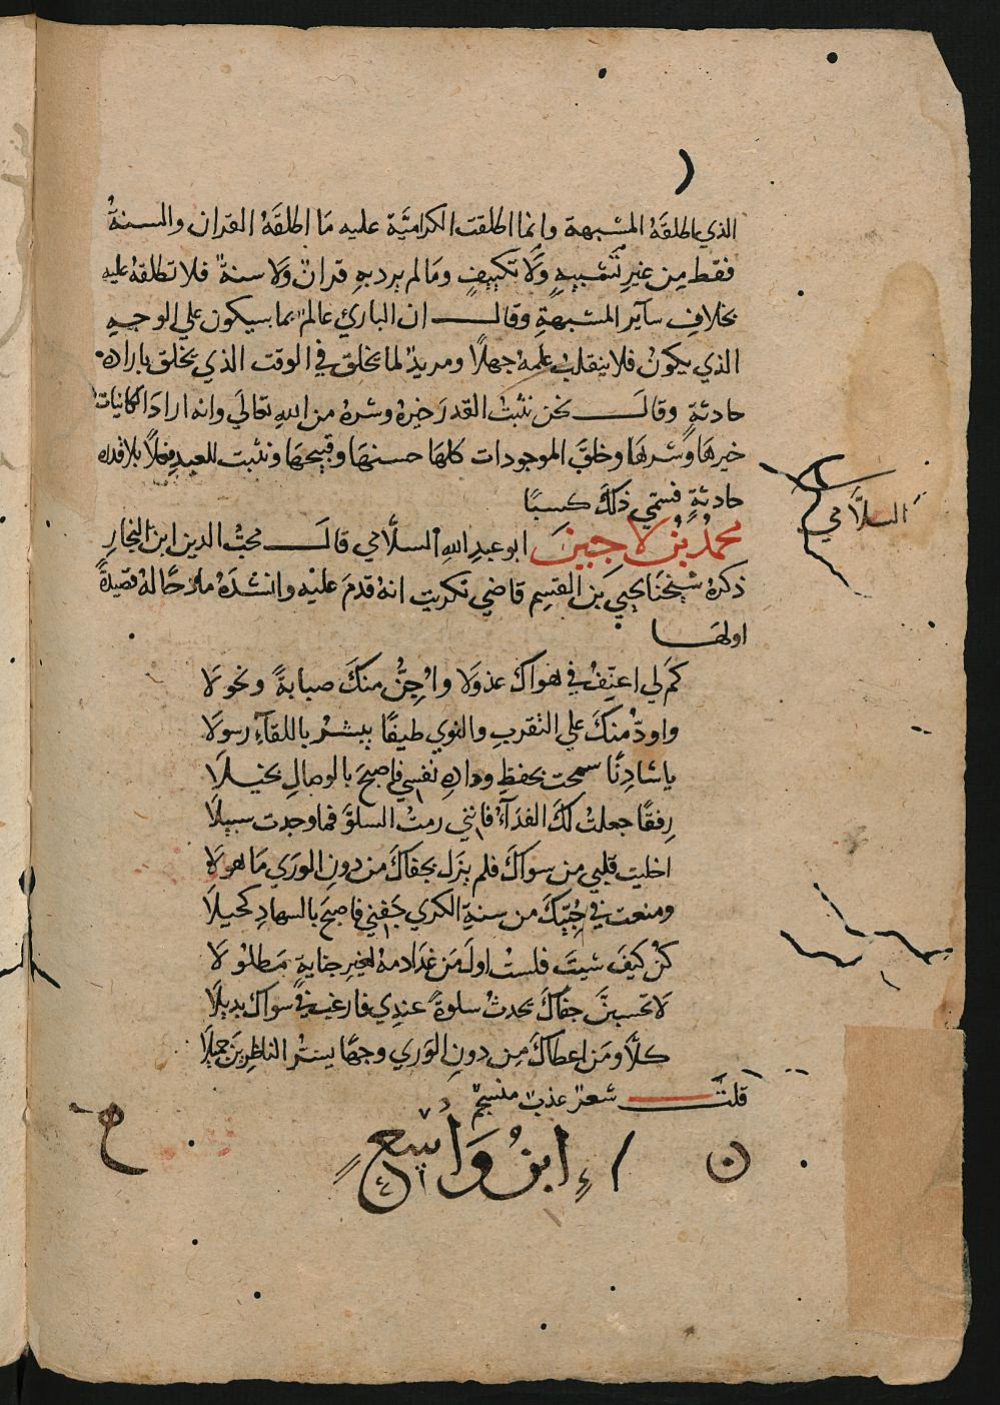 الذي اطلقَهُ المشبهة وانما اطلقت الكراميَّة عليه مَا اطلقَهُ القران والسنةُ
فقط مِن غيرِ تَشبيهٍ وَلَا تكييفٍ ومَا لم يرد بهِ قرانٌ وَلَا سنةٌ فلا تطلقهُ عليهِ
بخلافِ سآيرِ المشبهةِ وقال ان الباريَ عالمٌ بما سيكون علي الوجهِ
الذي يكونُ فلا ينقلب علمهُ جهلًا ومريدٌ لما يخلق في الوقت الذي يخلق بارادةٍ
حادثةٍ وقال نحن نثبتُ القدرَ خيرهُ وشرهُ من اللهِ تعالَي وانه ارادَ الكاينات
خيرهَا وشرهَا وخلقَ الموجودات كلهَا حسنهَا وقبيحهَا ونثبت للعبدِ فعلًا بالقدرةِ
حادثةٍ فسمّي ذلكَ كسبًا
السلَّامي
محمدُ بنُ لاجين ابو عبدِ اللهِ السلَّامي قالَ محبُّ الدين ابن النجارِ
ذكرهُ شيخنَا يحيي بن القسِم قاضي تكريت انهُ قدمَ عليْهِ وانشدَهُ مادحًا لهُ قصِيدةً
اولهَا
كَم لي اعنِّفُ في هواكَ عذولَا واُجنُّ منكَ صبابةً ونحولَا
واودّ منكَ علي التقربِ والنوي طيفًا يبشرُ باللقآءِ رسولَا
يا شادِنًا سمحت بحفظِ ودادِهِ نفسِي فاصبحَ بالوصالِ بخيلَا
رِفقًا جعلتُ لكَ الفدَآءُ فانني رمتُ السلوَّ فما وجدت سبيلَا
اخليت قلبي من سواكَ فلم يزَل بجفاكَ من دونِ الورَي مَاهولَا
ومنعت في حُبّيكَ من سنةِ الكري جَفني فاصبحَ بالسهادِ كحيلَا
كنْ كيفَ شيتَ فلستُ اولَ مَن غدَا دمهُ لغيرِ جنايةٍ مَطلُولَا
لَا تحسبنَّ جفاكَ يحدثُ سلوةً عندِي فارغبَ في سواك بديلَا
كلَّا ومَن اعطاكَ مِن دونِ الورَي وجهًا يسرُّ الناظِرينَ جميلَا
قلتُ شعرٌ عذبٌ منسجمٌ
ابنُ وَاسِعٍ